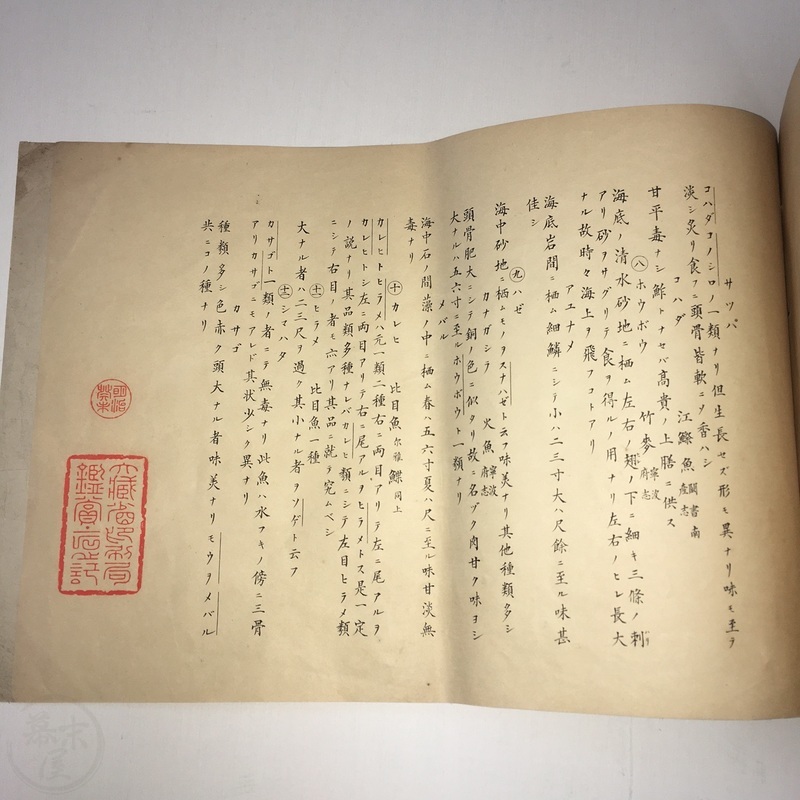 サツパ
コハダコノシロノ一類ナリ但生長セズ形モ異ナリ味モ至テ
淡シ炙リ食フニ頭骨皆軟ニソ香ハシ
コハダ 江鰶魚 閩書南産志
甘平毒ナシ鮓トナセバ高貴ノ上膳ニ供ス
八 ホウボウ 竹麥 寧波府志
海底ノ清水砂地ニ栖ム左右ノ翅ノ下ニ細キ三條ノ刺
アリ砂ヲサグリテ食ヲ得ルノ用ナリ左右ノヒレ長大
ナル故時々海上ヲ飛フコトアリ
アユナメ
海底岩間ニ栖ム細鱗ニシテ小ハ二三寸大ハ尺餘ニ至ル味甚
佳シ
九 ハゼ
海中砂地ニ栖ムモノヲスナハゼト云フ味美ナリ其他種類多シ
カナガシラ 火魚 寧波府志
頭骨肥大ニシテ銅ノ色ニ似タリ故ニ名ヅク肉甘ク味ヨシ
大ナルハ五六寸ニ至ルホウボウト一類ナリ
メバル
海中石ノ間藻ノ中ニ栖ム春ハ五六寸夏ハ尺ニ至ル味甘淡無
毒ナリ
十 カレヒ 比目魚 尓雅 鰈 同上
カレヒトヒラメハ元一類二種右ニ両目アリテ左ニ尾アルヲ
カレヒトシ左ニ両目アリテ右ニ尾アルヲヒラメトス是一定
ノ説ナリ其品類多種ナレバカレヒ類ニシテ左目ヒラメ類
ニシテ右目ノ者モ亦アリ其品ニ就テ究ムベシ
十一 ヒラメ 比目魚一種
大ナル者ハ二三尺ヲ過ク其小ナル者ヲソゲト云フ
十二 シマハタ
カサゴト一類ノ者ニテ無毒ナリ此魚ハ水フキノ傍ニ三骨
アリカサゴニモアレド其状少シク異ナリ
カサゴ
種類多シ色赤ク頭大ナル者味美ナリモウヲメバル
共ニコノ種ナリ
大蔵省印刷局
鑑賞之証
幕末屋